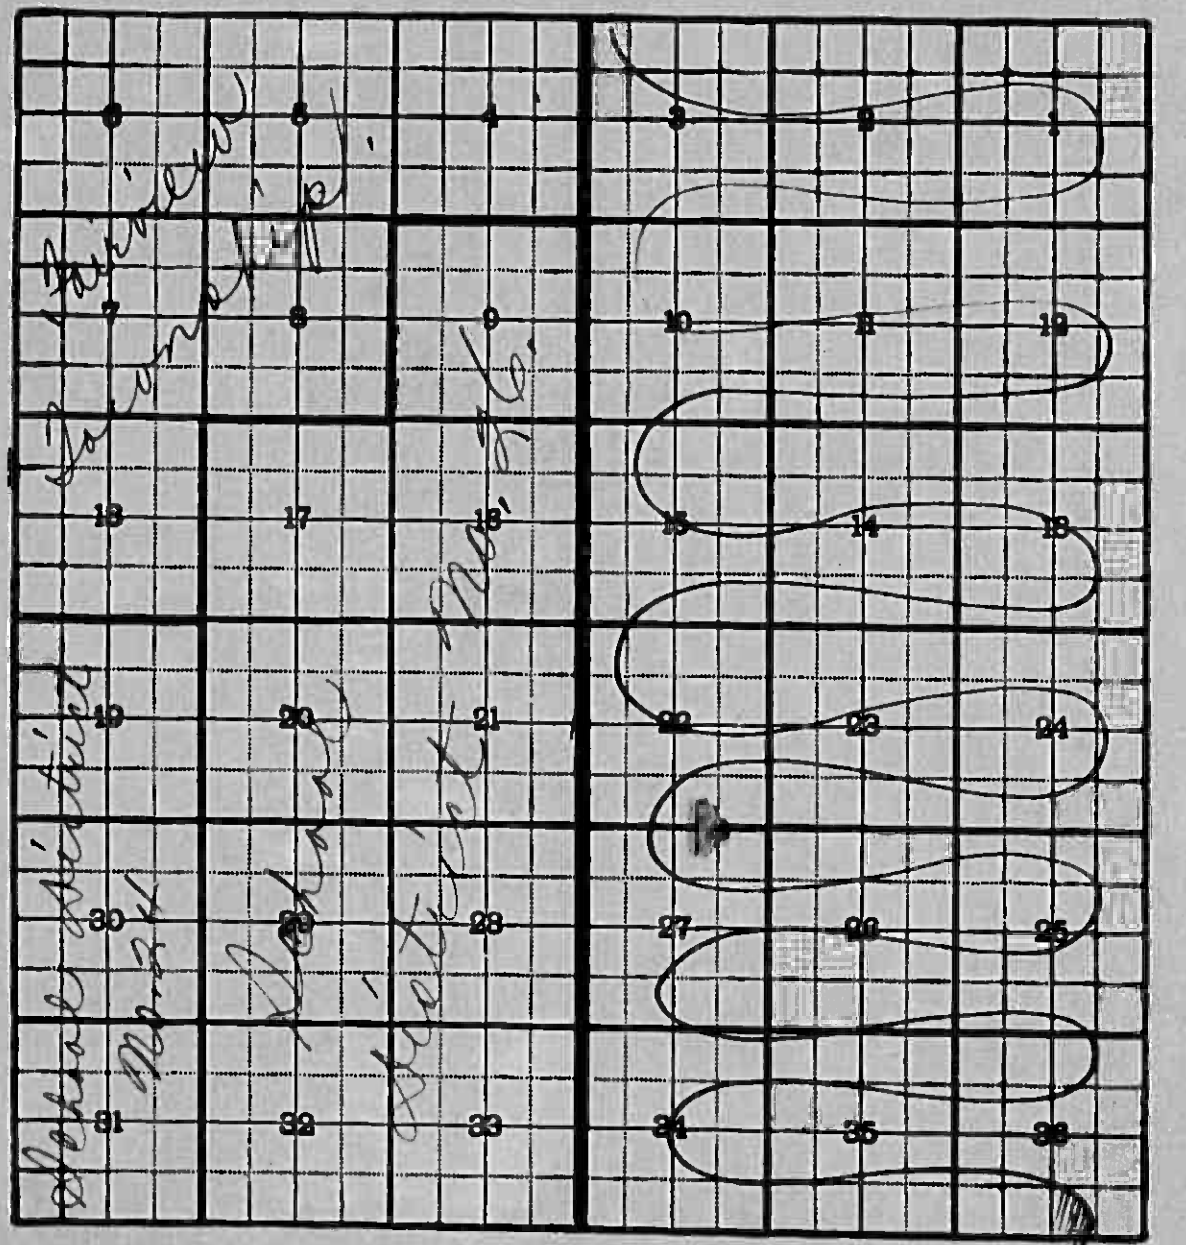 6 5 4 3 2 1
7 8 9 10 11 12
18 17 16 15 14 13
19 20 21 22 23 24
30 29 28 27 26 25
31 32 33 34 35 36
School District
Fairview
School
District No.